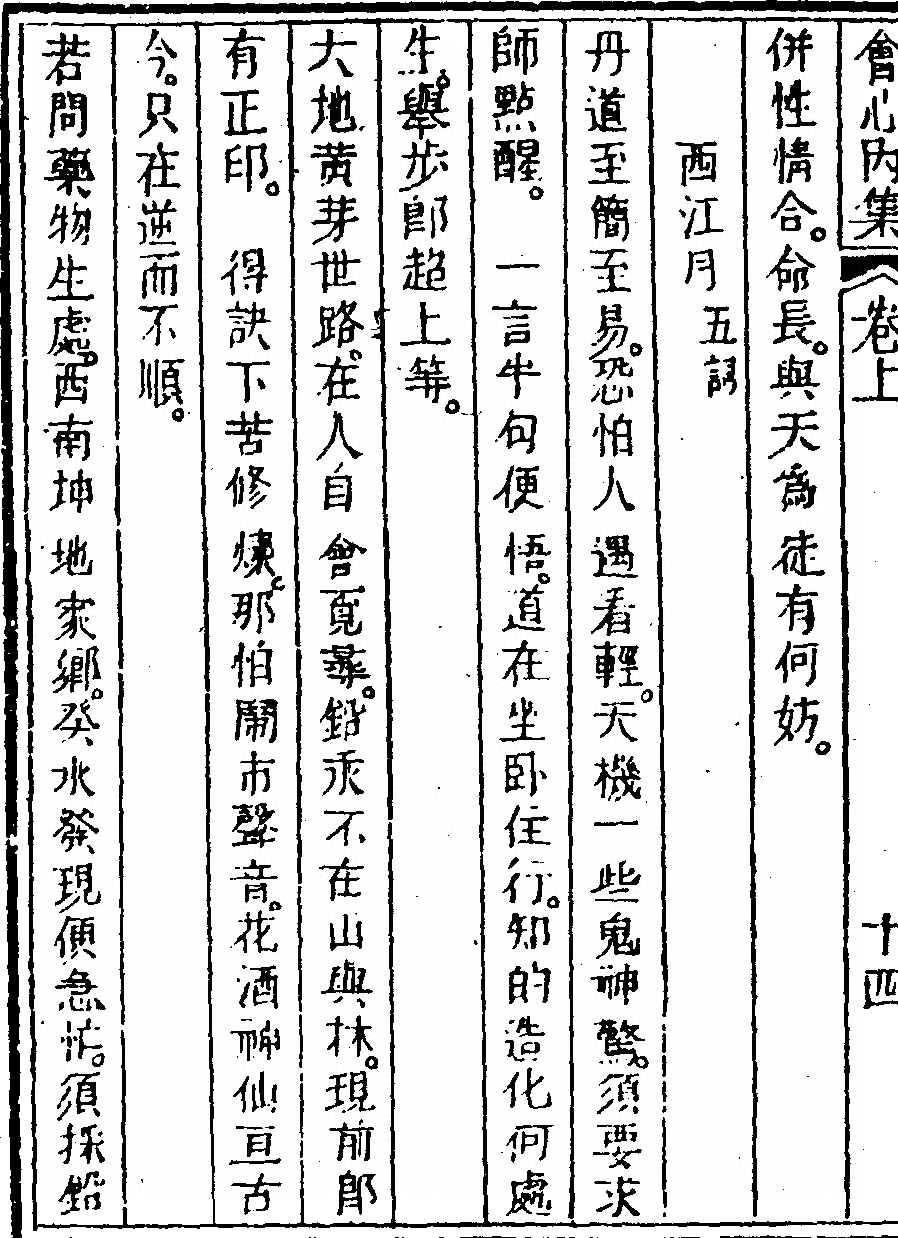 會心內集 卷上 十四
併性情合。命長。與天爲徒有何妨。
西江月 五調
丹道至簡至易。恐怕人遇看輕。天機一些鬼神驚。須要求
師點醒。 一言半句便悟。道在坐卧住行。知的造化何處
生。舉步郎超上等。
大地黄芽世路。在人自會覓尋。鉛汞不在山與林。現前郎
有正印。 得訣下苦修煉。那怕鬧市聲音。花酒神仙亘古
今。只在逆而不順。
若問藥物生處。西南坤地家鄉。癸水發現便急忙。須採鉛